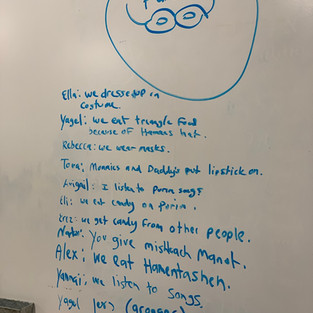 Ella: we dressed up in
costume.
Yagel: we eat triangle food
because of Hamans hat.
Rebecca: we wear masks.
Tova: Mommies and Daddys put lipstick on.
Avigail: I listen to Purim songs
Eli: we eat candy on Purim.
Erez: we get candy from other people.
You give mishloach Manot.
Alex: we eat Hamentashen.
Yannai: we listen to songs.
Yagel